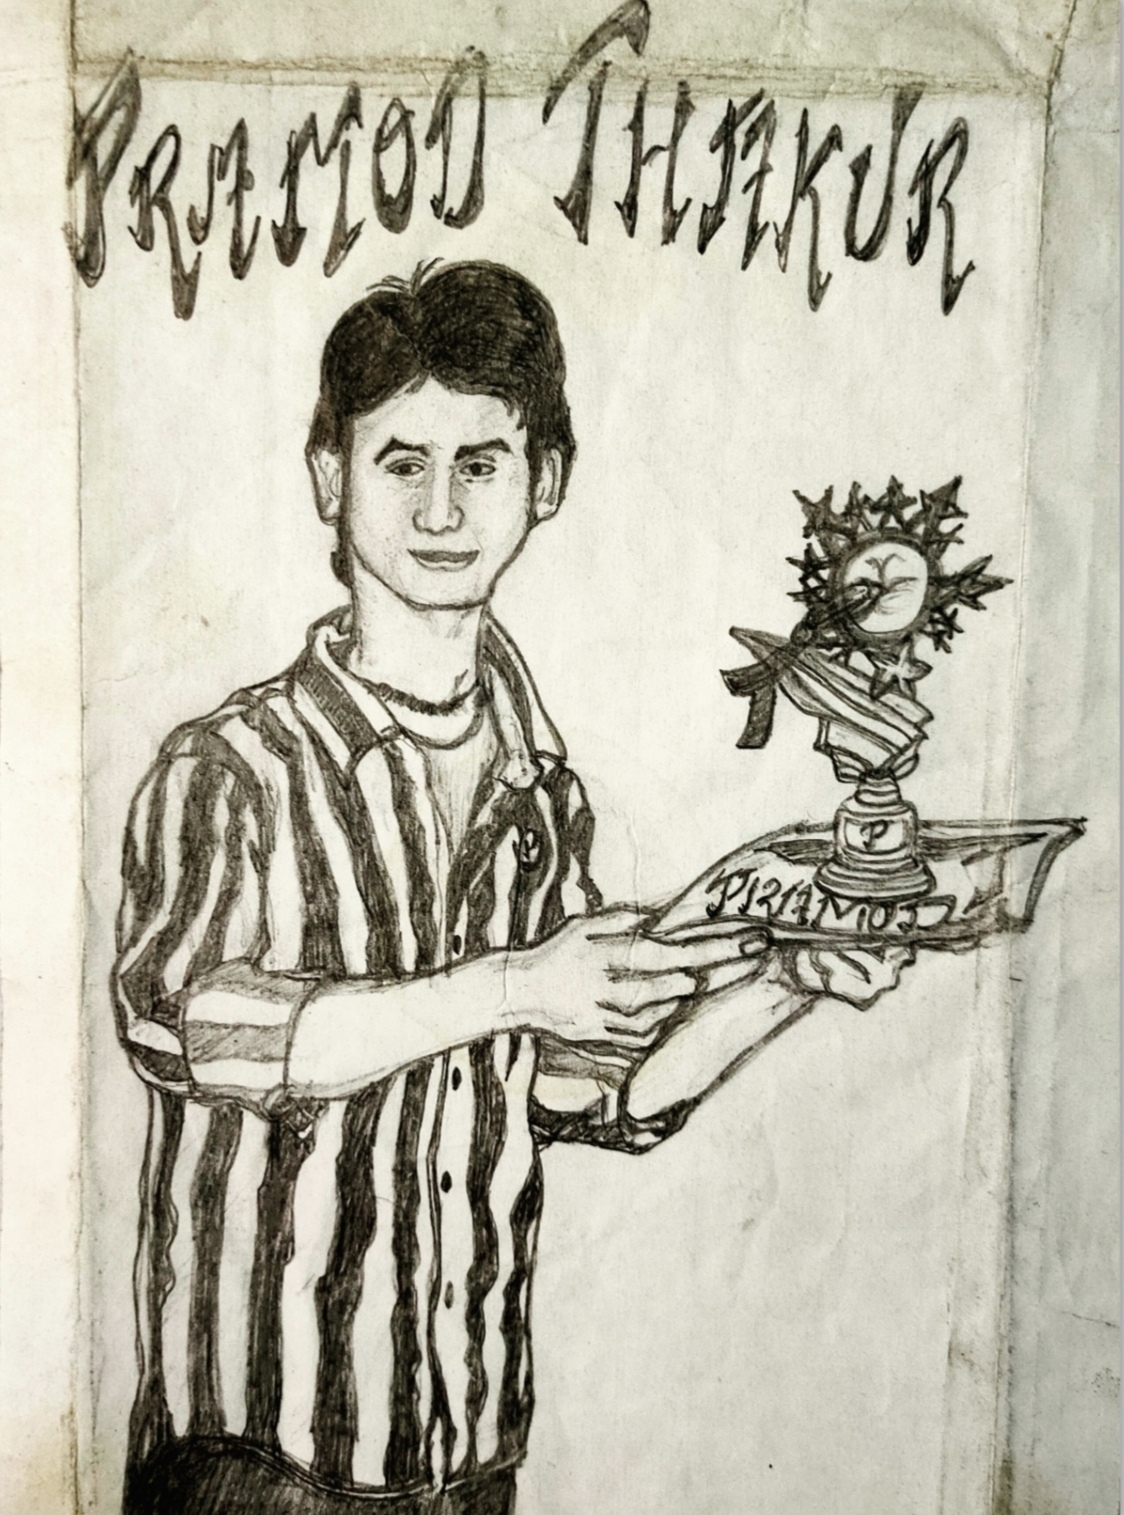 PRAMOD THAKUR
P
P
PRAMOD